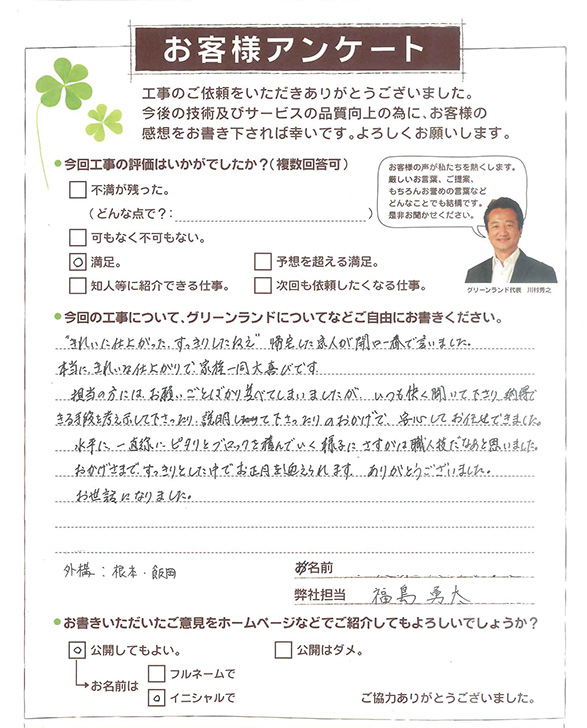 お客様アンケート
工事のご依頼をいただきありがとうございました。
今後の技術及びサービスの品質向上の為に、お客様の
感想をお書き下されば幸いです。よろしくお願いします。
今回工事の評価はいかがでしたか?(複数回答可)
不満が残った。
(どんな点で?:)
可もなく不可もない。
満足。
予想を超える満足。
知人等に紹介できる仕事。
次回も依頼したくなる仕事。
お客様の声が私たちを熱くします。
厳しいお言葉、ご提案、
もちろんお誉めの言葉など
どんなことでも結構です。
是非お聞かせください。
グリーンランド代表 川村秀之
今回の工事について、グリーンランドについてなどご自由にお書きください。
"きれいに仕上がった、すっきりしたねえ" 帰宅した家人が開口一番で言いました。
本当に、きれいな仕上がりで、家族一同大喜びです。
担当の方には、お願いごとばかり並べてしまいましたが、いつも快く聞いて下さり 納得で
きる手段を考え示して下さったり、説明して下さったりのおかげで、安心してお任せできました。
水平に 一直線に ピタリとブロックを積んでいく様子に さすがは職人技だなあと思いました。
おかげさまで、すっきりとした中でお正月を迎えられます ありがとうございました。
お世話になりました。
外構:根本・飯岡
お名前
弊社担当 福島 勇太
お書きいただいたご意見をホームページなどでご紹介してもよろしいでしょうか?
公開してもよい。
公開はダメ。
お名前は
フルネームで
イニシャルで
ご協力ありがとうございました。